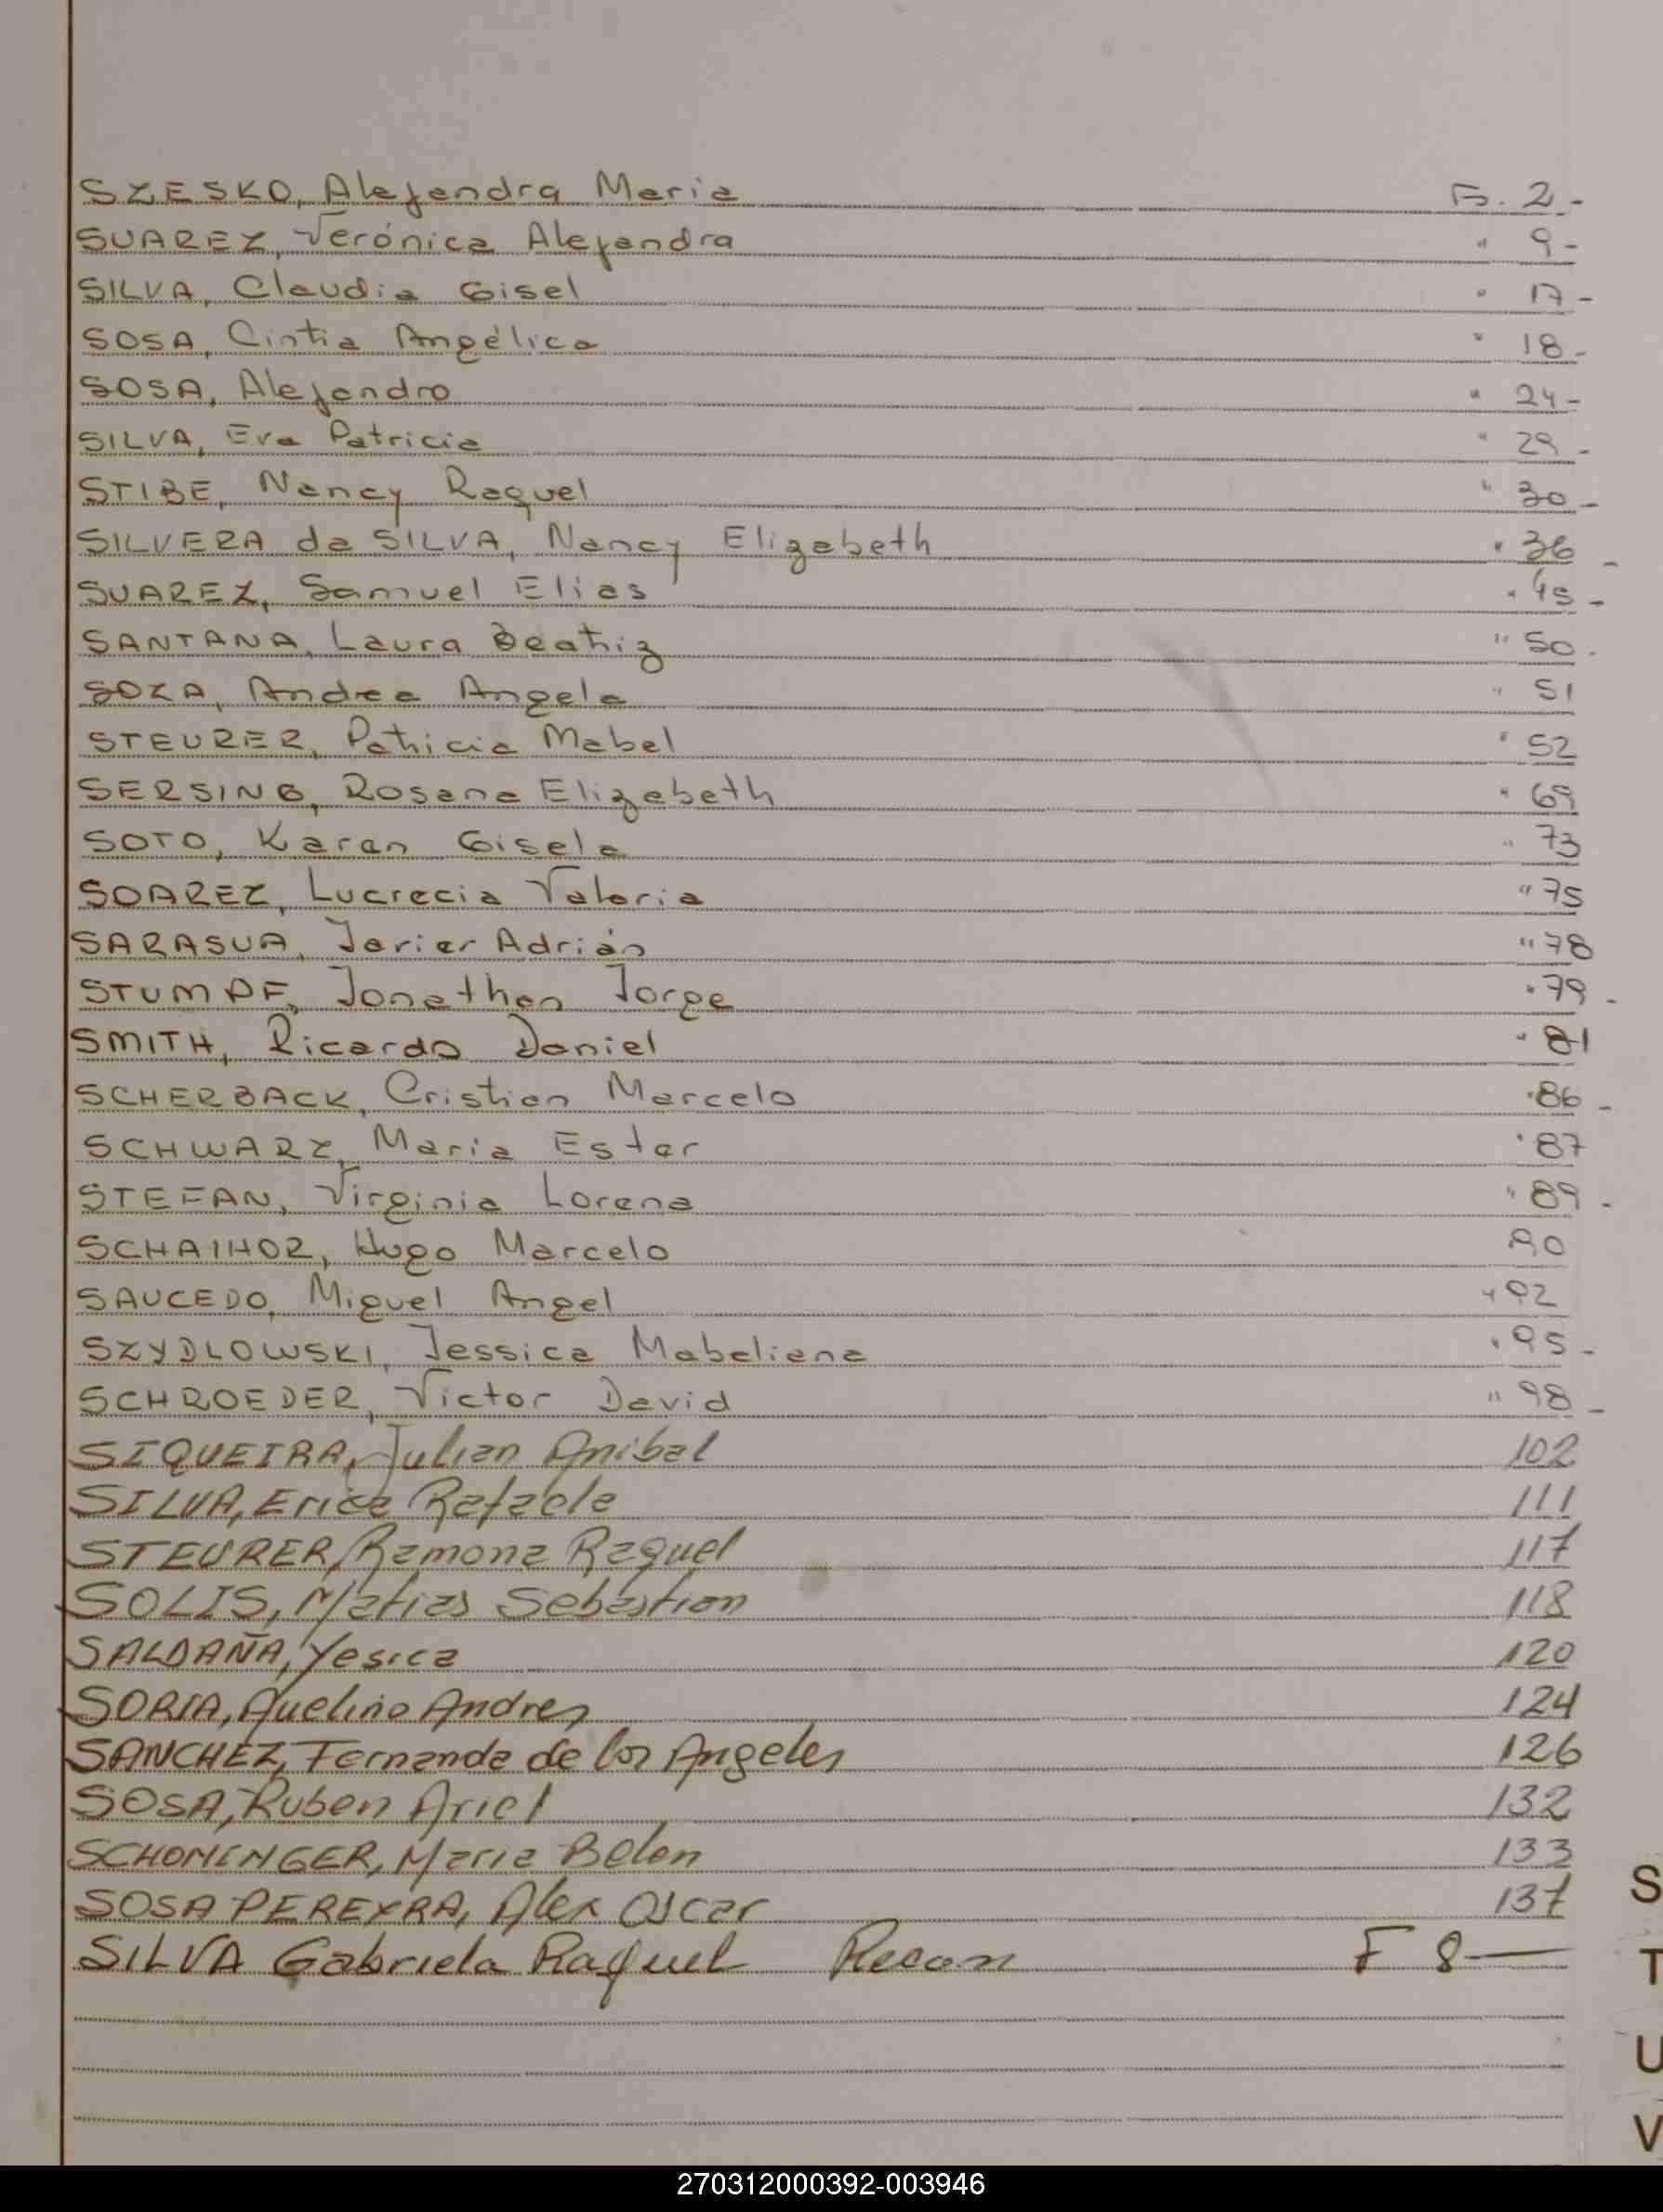 SZESKO, Alejandra Maria Fs. 2 -
SUAREZ, Verónica Alejandra " 9 -
SILVA, Claudia Gisel " 17 -
SOSA, Cintia Angélica " 18 -
SOSA, Alejandro " 24 -
SILVA, Eva Patricia " 29 -
STIBE, Nancy Raquel " 30 -
SILVERA de SILVA, Nancy Elizabeth " 36 -
SUAREZ, Samuel Elias " 45 -
SANTANA, Laura Beatriz " 50 -
SOZA, Andrea Angela " 51
STEURER, Patricia Mabel " 52
SERSING, Rosana Elizabeth " 69
SOTO, Karen Gisela " 73
SOAREZ, Lucrecia Valeria " 75
SARASUA, Javier Adrián " 78
STUMPF, Jonathan Jorge " 79 -
SMITH, Ricardo Daniel " 81
SCHERBACK, Cristian Marcelo " 86 -
SCHWARZ, Maria Ester " 87
STEFAN, Virginia Lorena " 89 -
SCHAIHOR, Hugo Marcelo 90
SAUCEDO, Miguel Angel " 92
SZYDLOWSKI, Jessica Mabeliana " 95 -
SCHROEDER, Victor David " 98 -
SIQUEIRA, Julian Anibal 102
SILVA, Erica Rafaela 111
STEURER, Ramona Raquel 117
SOLIS, Matias Sebastian 118
SALDAÑA, Yesica 120
SORIA, Avelino Andres 124
SANCHEZ, Fernanda de los Angeles 126
SOSA, Ruben Ariel 132
SCHONINGER, Maria Belen 133
SOSA PEREYRA, Alex Oscar 137
SILVA Gabriela Raquel Recon F 8 —
S
T
U
V
270312000392-003946